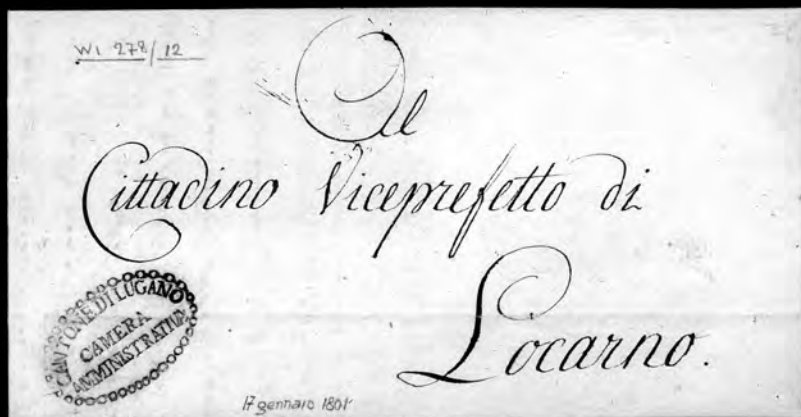 WI 278/12
Al
Cittadino Viceprefetto di
Locarno.
CANTONE DI LUGANO
CAMERA
AMMINISTRATIVA
17 gennaio 1801